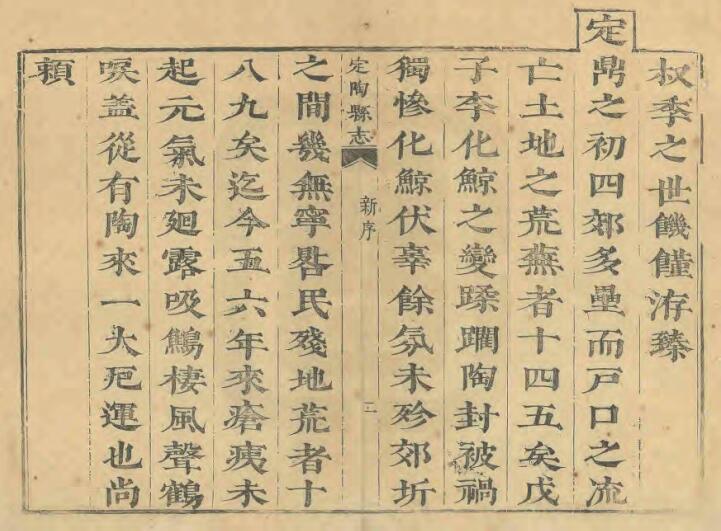 叔季之世饑饉洊臻
定
鼎之初四郊多壘而戶口之流
亡土地之荒蕪者十四五矣戊
子李化鯨之變蹂躙陶封被禍
獨慘化鯨伏辜餘氛未殄郊圻
定陶縣志
新序
二
之間幾無寧晷民殘地荒者十
八九矣迄今五六年來瘡痍未
起元氣未廻露吸鷦棲風聲鶴
唳盖從有陶來一大戹運也尚
頼